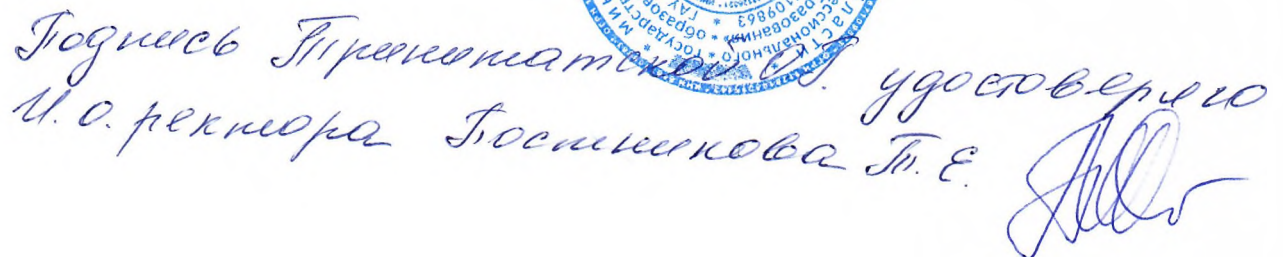 Подпись Тринитатской О.Г. удостоверяю
И.о. ректора Постникова Т.Е.